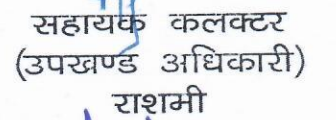 सहायक कलक्टर
(उपखण्ड अधिकारी)
राशमी